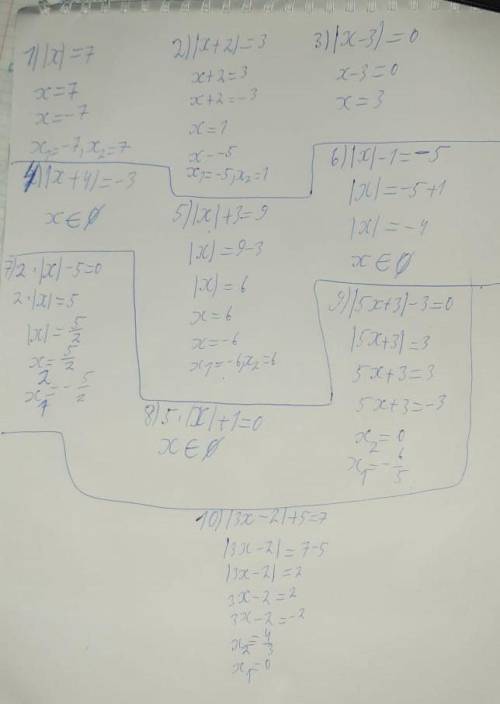 1) |x|=7
x=7
x=-7
x₁=-7, x₂=7
2) |x+2|=3
x+2=3
x+2=-3
x=1
x=-5
x₁=-5, x₂=1
3) |x-3|=0
x-3=0
x=3
4) |x+4|=-3
x∈∅
5) |x|+3=9
|x|=9-3
|x|=6
x=6
x=-6
x₁=-6, x₂=6
6) |x|-1=-5
|x|=-5+1
|x|=-4
x∈∅
7) 2·|x|-5=0
2·|x|=5
|x|=5/2
x₂=5/2
x₁=-5/2
8) 5·|x|+1=0
x∈∅
9) |5x+3|-3=0
|5x+3|=3
5x+3=3
5x+3=-3
x₂=0
x₁=-6/5
10) |3x-2|+5=7
|3x-2|=7-5
|3x-2|=2
3x-2=2
3x-2=-2
x₂=4/3
x₁=0